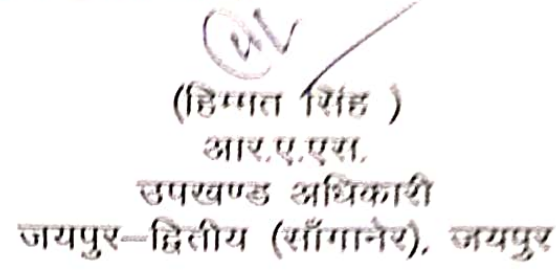 (हिम्मत सिंह )
आर.ए.एस.
उपखण्ड अधिकारी
जयपुर–द्वितीय (साँगानेर), जयपुर